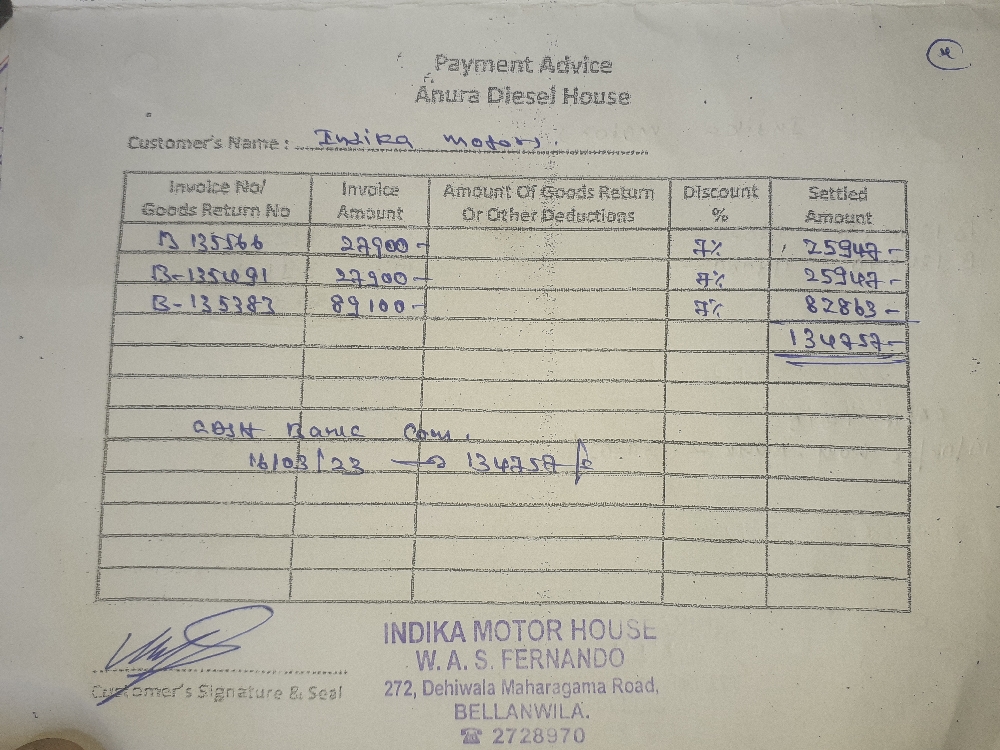 Payment Advice
Anura Diesel House
Customer's Name : Indika motors.
Invoice No/ Goods Return No Invoice Amount Amount Of Goods Return Or Other Deductions Discount % Settled Amount
B 135566 27900- 7% 25947-
B-135491 27900- 7% 25947-
B-135383 89100- 7% 82863-
134757-
CASH Bank
16/03/23 → 134757
Customer's Signature & Seal
INDIKA MOTOR HOUSE
W. A. S. FERNANDO
272, Dehiwala Maharagama Road,
BELLANWILA.
☎ 2728970